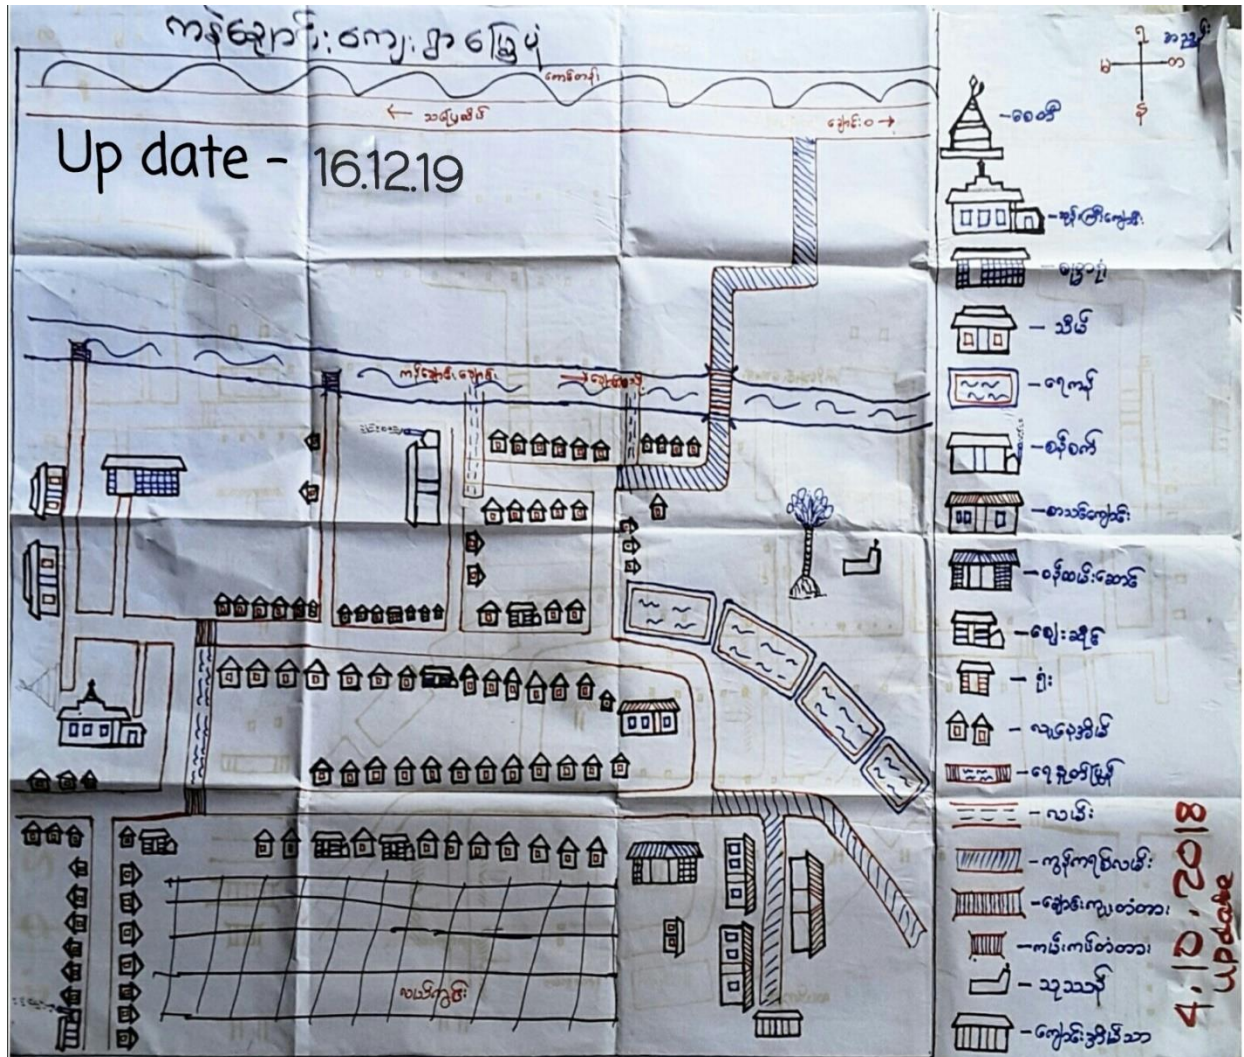 ကန်ချောင်းကျေးရွာမြေပုံ
တောင်တန်း
← သပြေထိပ်
ချောင်းဝ →
Up date - 16.12.19
ကန်ချောင်းချောင်း
လယ်ကွင်း
အညွှန်း
တ
န
စေတီ
ဘုန်းကြီးကျောင်း
ဓမ္မာရုံ
သိမ်
ရေကန်
စပါးစက်
စာသင်ကျောင်း
ဝန်ထမ်းဆောင်
ဈေးဆိုင်
ရုံး
လူနေအိမ်
ရေနုတ်မြောင်း
လမ်း
ကွန်ကရစ်လမ်း
ချောင်းကူးတံတား
ကမ်းကပ်တံတား
သုဿာန်
ကျောင်းအိမ်သာ
4.10.2018
update